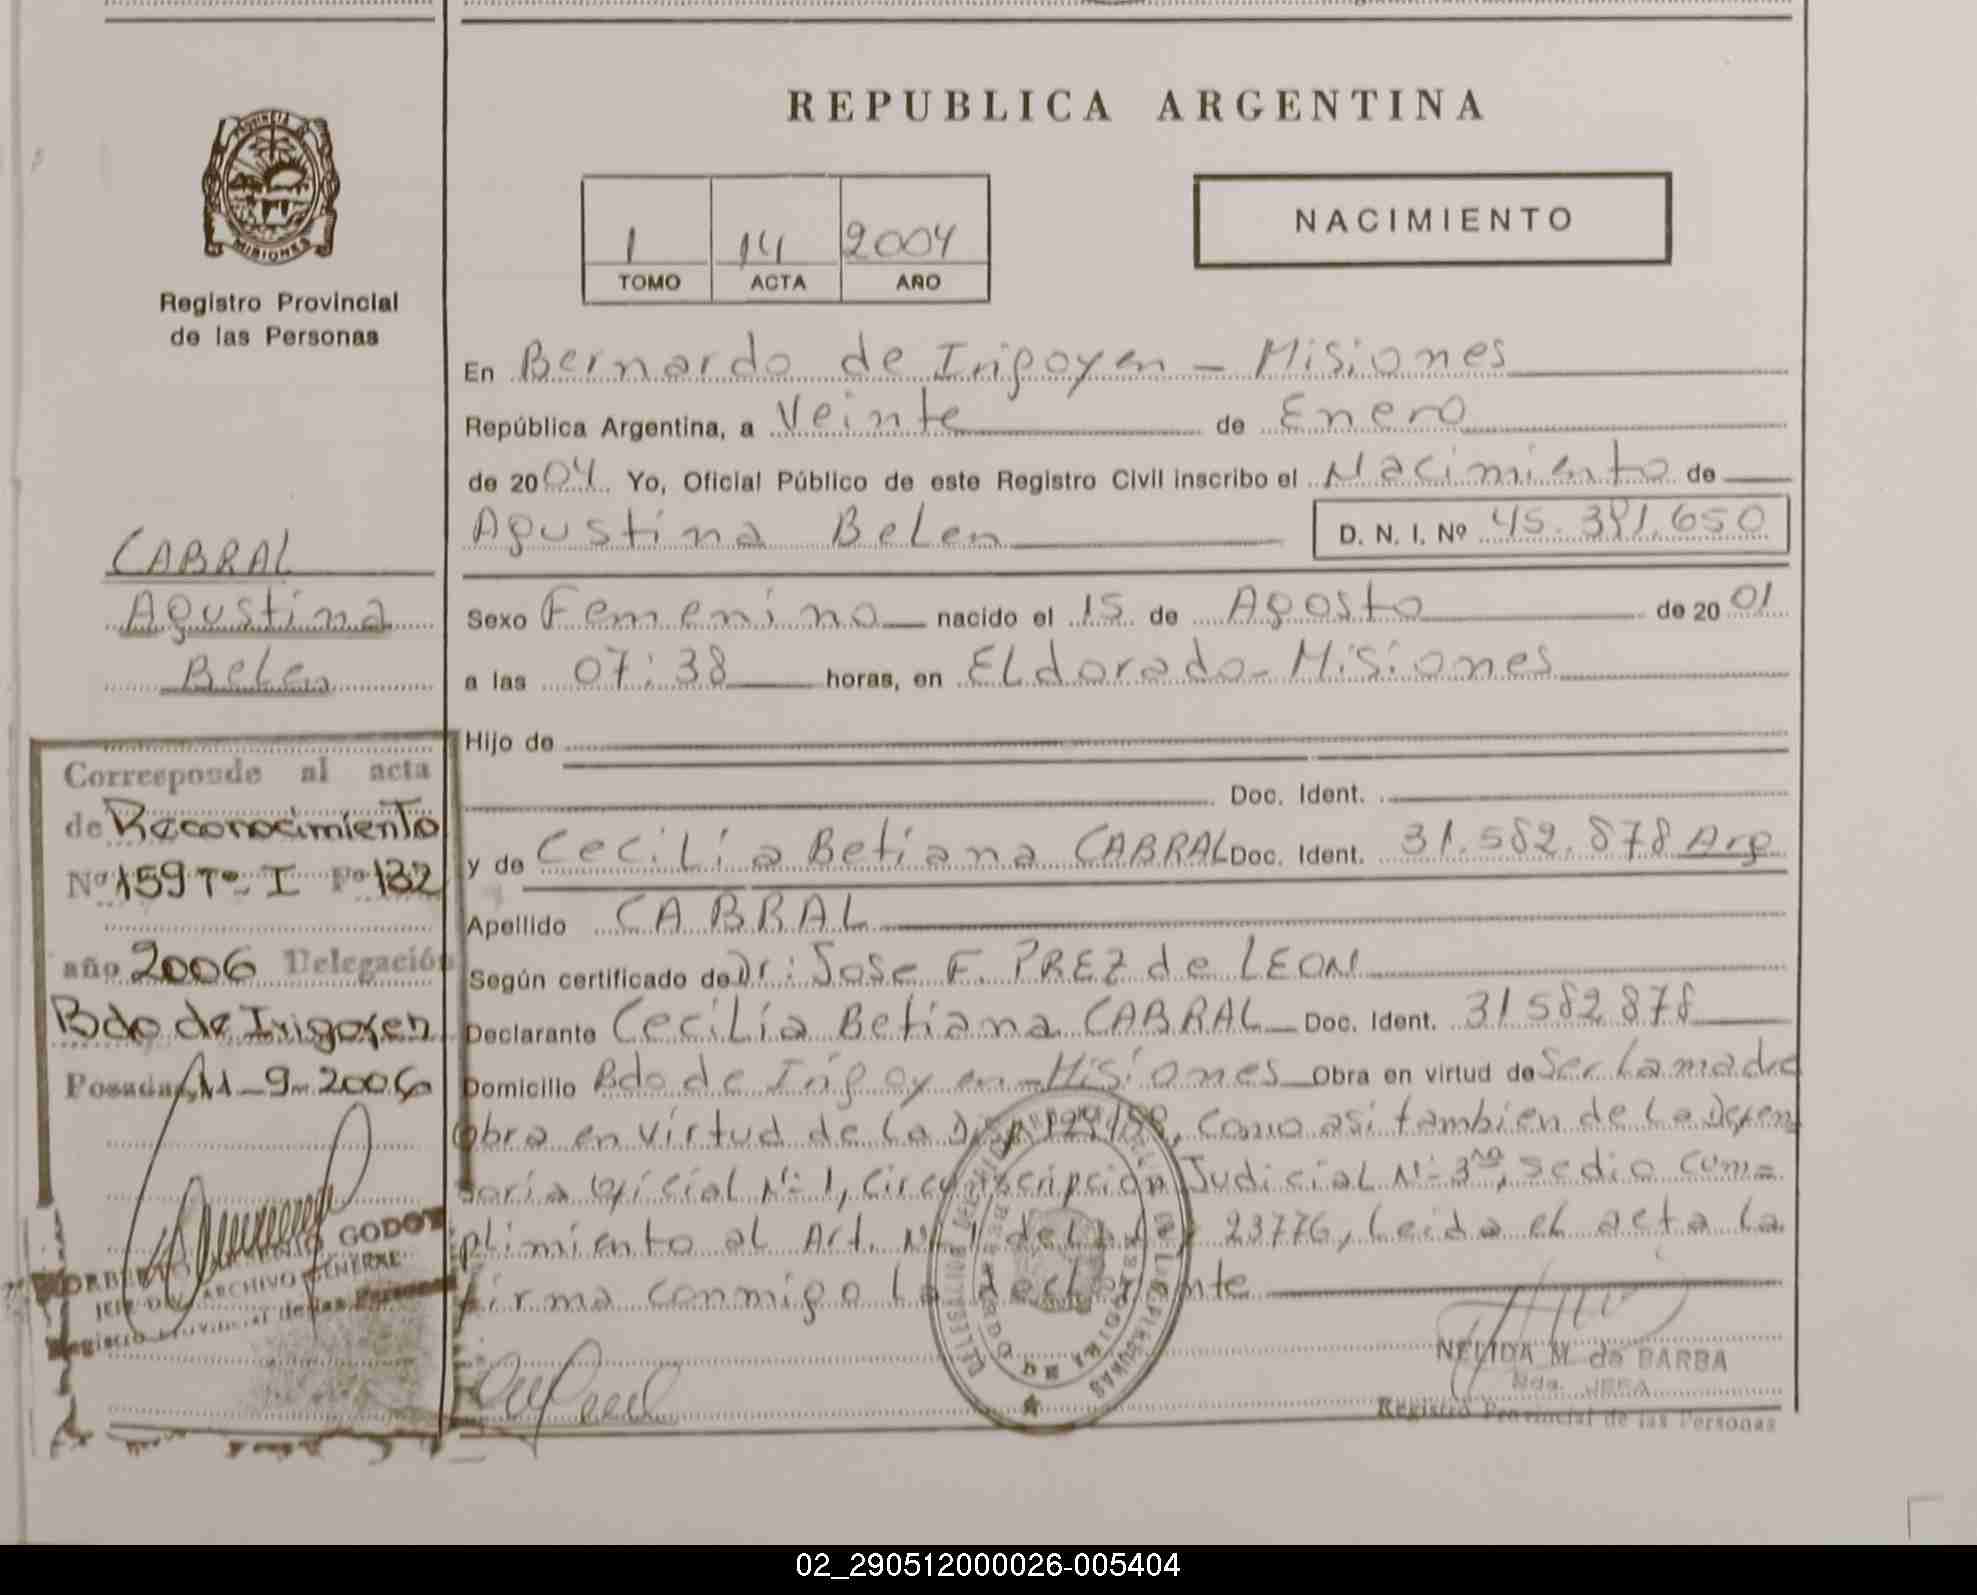 REPUBLICA ARGENTINA
PROVINCIA DE
MISIONES
Registro Provincial
de las Personas
1 14 2004
TOMO ACTA AÑO
NACIMIENTO
En Bernardo de Irigoyen - Misiones
República Argentina, a Veinte de Enero
de 2004 Yo, Oficial Público de este Registro Civil inscribo el Nacimiento de
Agustina Belen D. N. I. Nº 45.391.650
CABRAL
Agustina
Belen
Sexo Femenino nacido el 15 de Agosto de 2001
a las 07:38 horas, en ELdorado - Misiones
Hijo de
Doc. Ident.
y de CeciLia Betiana CABRAL Doc. Ident. 31.582.878 Arg
Apellido CABRAL
Según certificado de Dr: Jose F. PREZ de LEON
Declarante CeciLia Betiana CABRAL Doc. Ident. 31582878
Domicilio Bdo de Irigoyen - Misiones Obra en virtud de Ser La madre
obra en virtud de La 129/88, como asi tambien de La Defen
soria oficial Nº 1, circunscripcion Judicial Nº 3ra, sedio cum=
plimiento al Art. Nº 1 del 23776, Leida el acta La
firma conmigo La declarante
Corresponde al acta
de Reconocimiento
Nº 159 Tº I Fº 132
año 2006 Delegación
Bdo de Irigoyen
Posadas, 11-9-2006
GODOY
JEFE DEL ARCHIVO GENERAL
Registro Provincial de las Personas
NELIDA M. de BARBA
Registro Provincial de las Personas
02_290512000026-005404